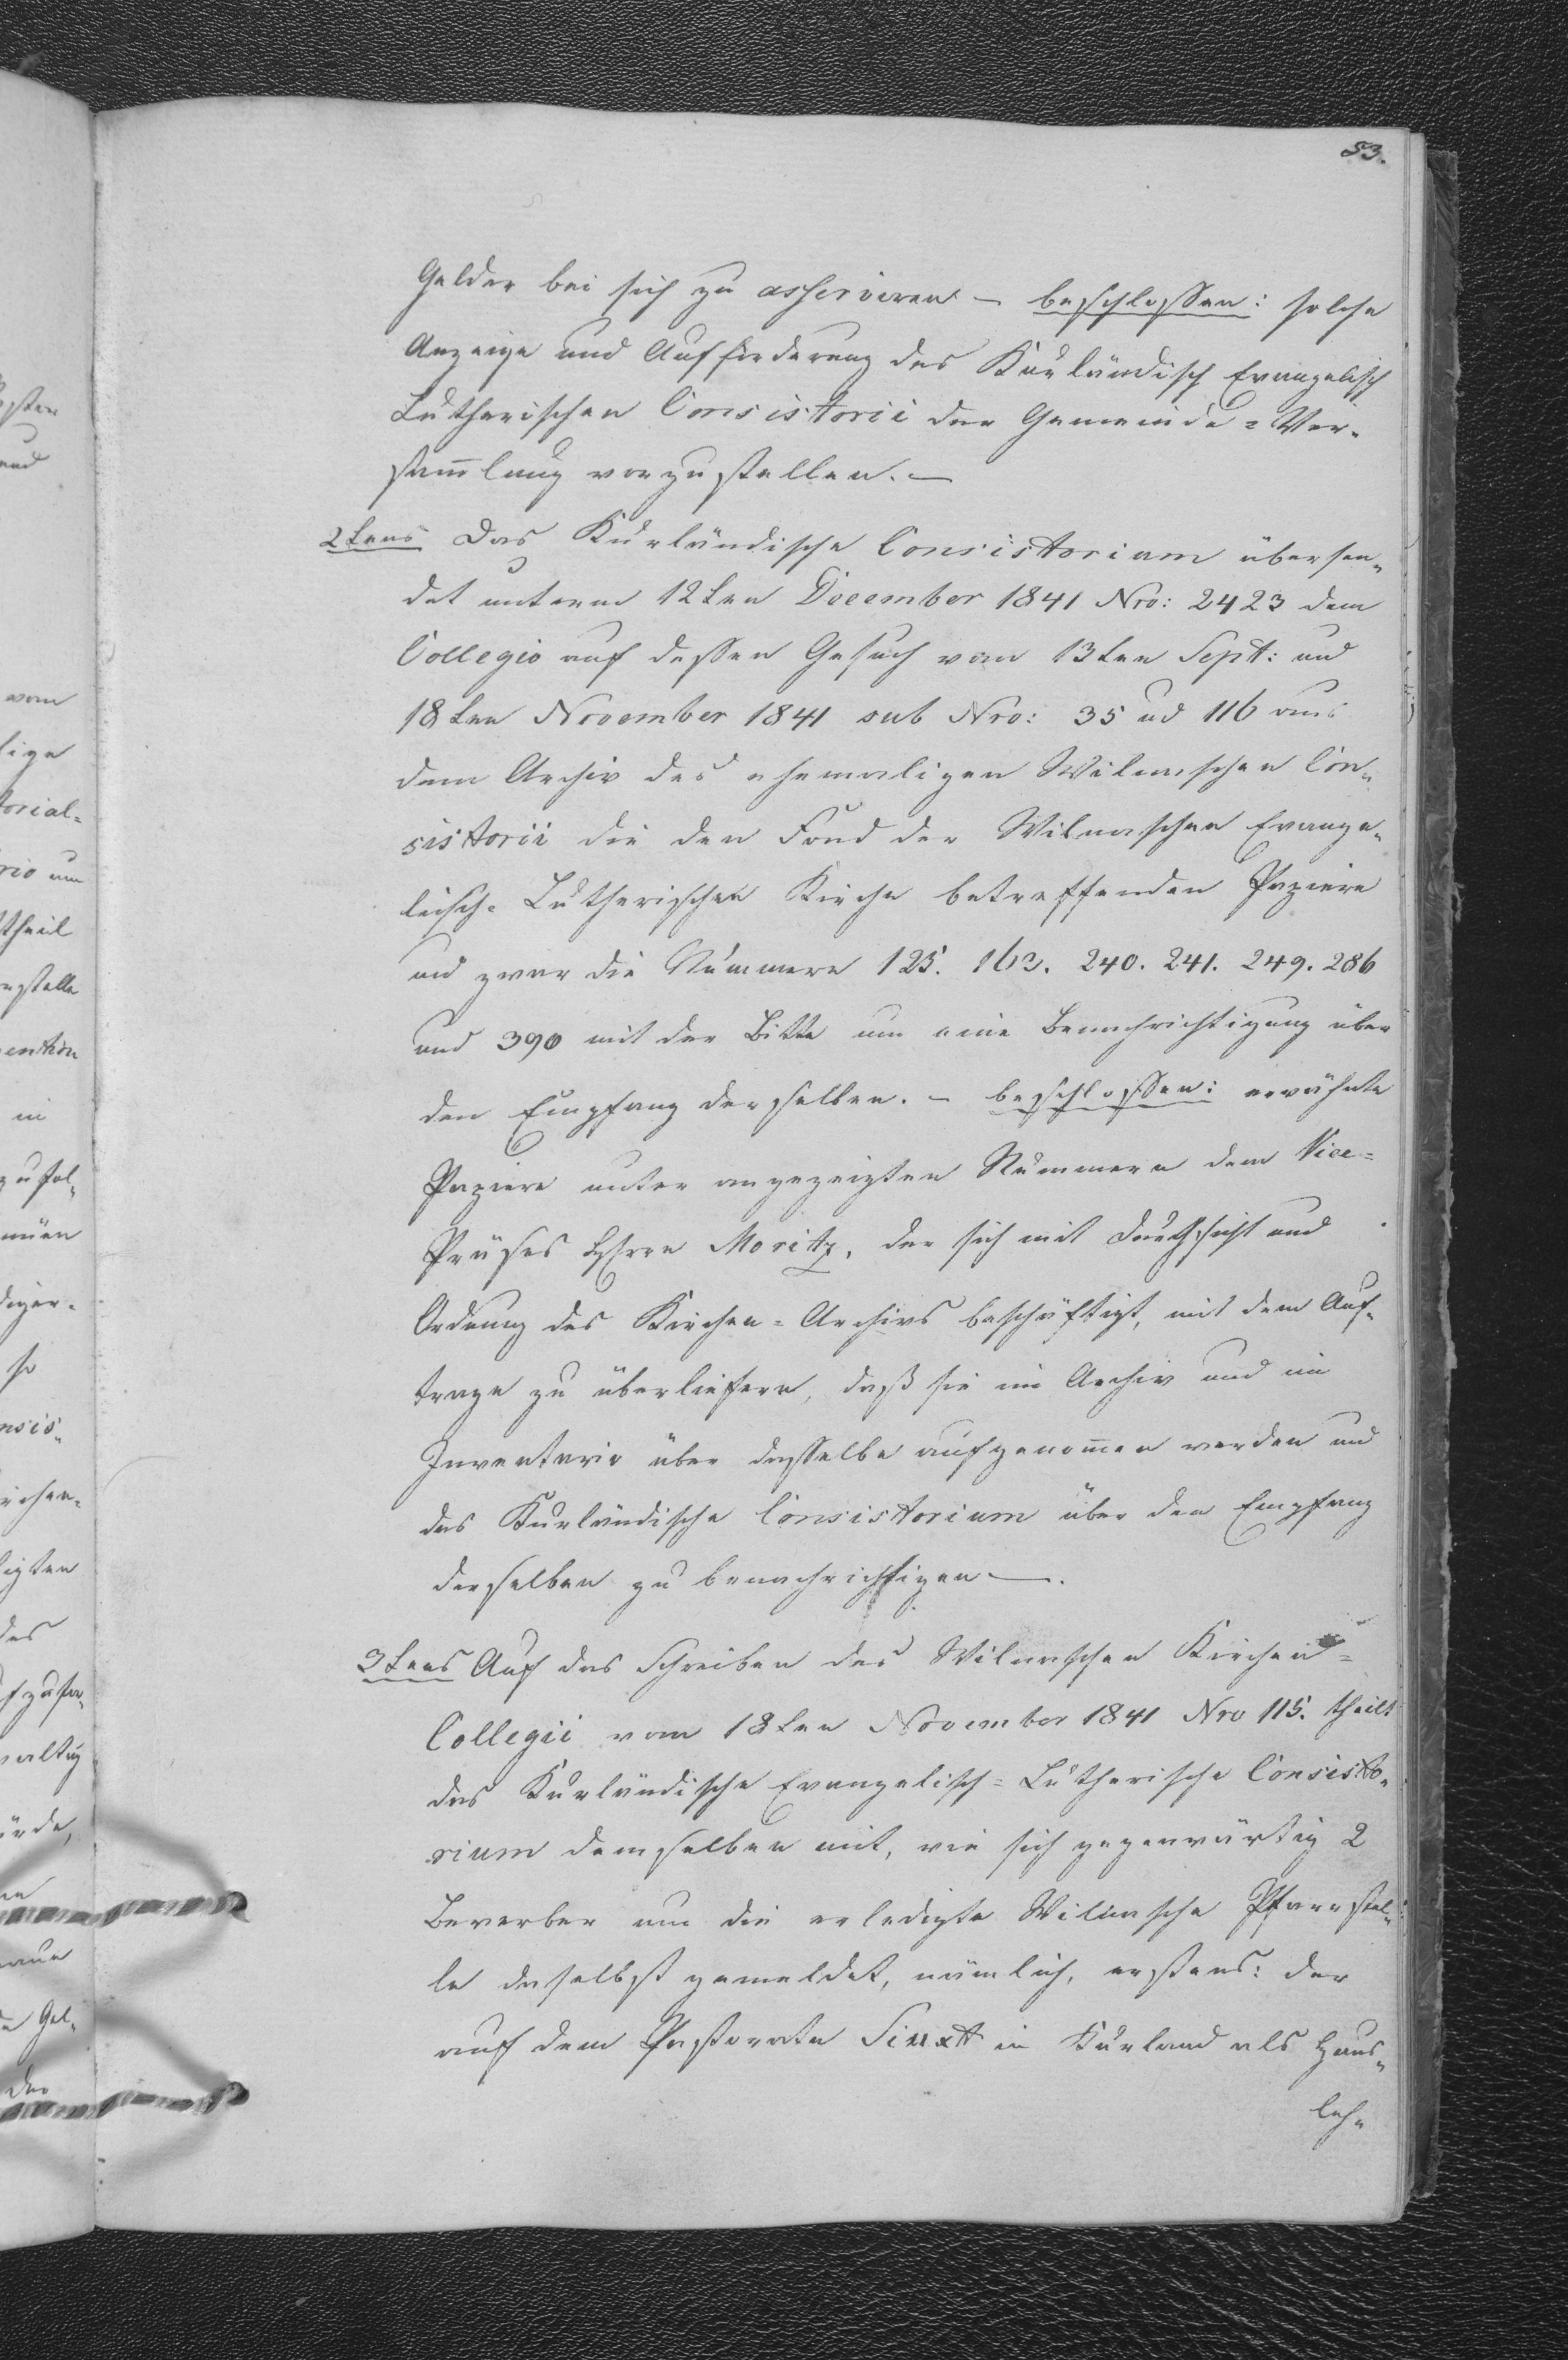 53.
Gelder bei sich zu asserviren – beschlossen: solche
Anzeige und Aufforderung des Kurländisch Evangelisch
Lutherischen Consistorii der Gemeinde=Ver-
sam̄lung vorzustellen. –
2tens Das Kurländische Consistorium übersen-
det unterm 12ten December 1841 Nro: 2423 dem
Collegio auf dessen Gesuch vom 13ten Sept: und
18ten November 1841 sub Nro: 35 und 116 aus
dem Archiv des ehemaligen Wilnaschen Con-
sistorii die den Fond der Wilnaschen Evange-
lisch-Lutherischen Kirche betreffenden Papiere
und zwar die Nummern 125. 163. 240. 241. 249. 286
und 390 mit der Bitte um eine Benachrichtigung über
den Empfang derselben. – beschlossen: erwähnte
Papiere unter angezeigten Nummern dem Vice=
Präses Herrn Moritz, der sich mit Durchsicht und
Ordnung des Kirchen=Archivs beschäftigt, mit dem Auf-
trage zu überliefern, daß sie im Archiv und im
Inventario über dasselbe aufgenom̄en werden und
das Kurländische Consistorium über den Empfang
derselben zu benachrichtigen –.
3tens Auf das Schreiben des Wilnaschen Kirchen=
Collegii vom 18ten November 1841 Nro 115. theilt
das Kurländische Evangelisch=Lutherische Consisto-
rium demselben mit, wie sich gegenwärtig 2
Bewerber um die erledigte Wilnasche Pfarrstel-
le daselbst gemeldet, nämlich, erstens: der
auf dem Pastorate Siuxt in Kurland als Haus-
leh-